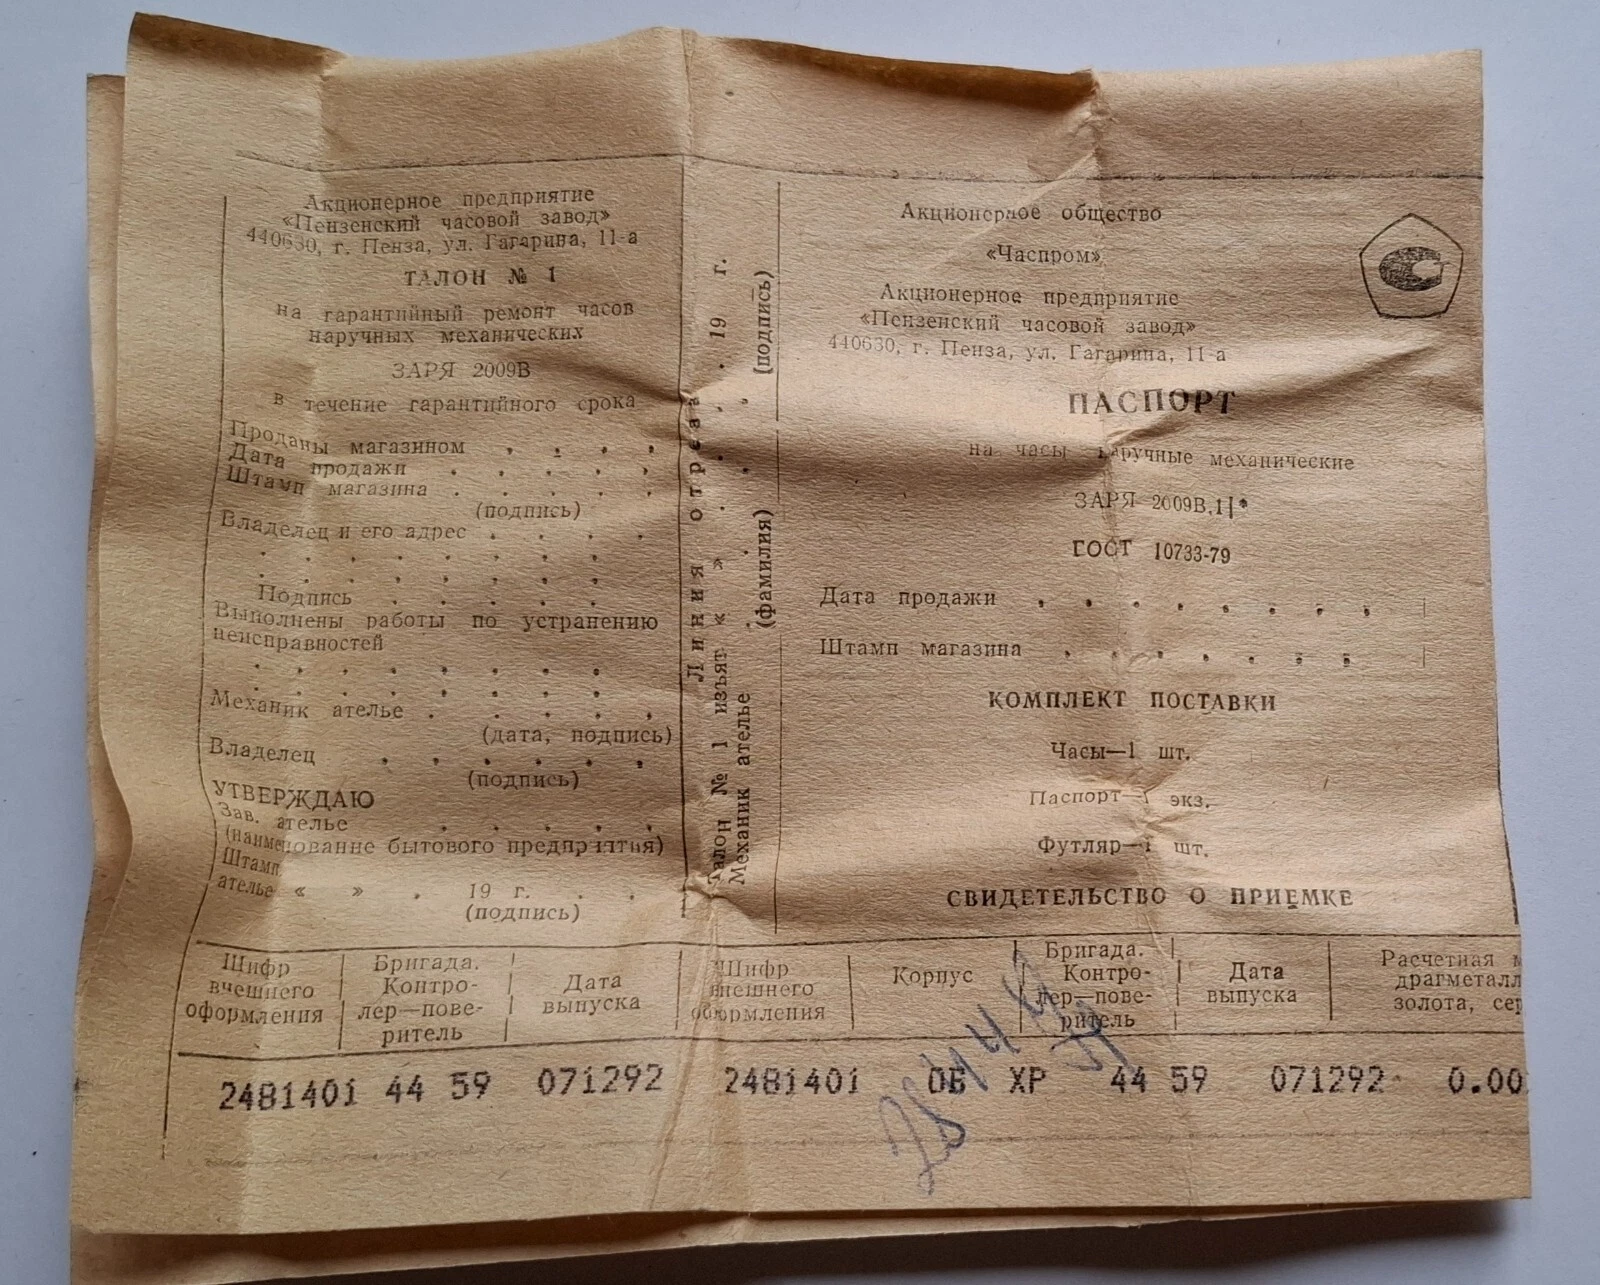 Акционерное предприятие
«Пензенский часовой завод»
440630, г. Пенза, ул. Гагарина, 11-а
ТАЛОН № 1
на гарантийный ремонт часов
наручных механических
ЗАРЯ 2009В
в течение гарантийного срока
Проданы магазином . . . .
Дата продажи . . . . .
Штамп магазина . . . . .
(подпись)
Владелец и его адрес . . . .
. . . . . . . .
. . . . . . . .
Подпись . . . . .
Выполнены работы по устранению
неисправностей
. . . . . . . .
. . . . . . . .
Механик ателье . . . . .
(дата, подпись)
Владелец . . . . . .
(подпись)
УТВЕРЖДАЮ
Зав. ателье . . . . .
(наименование бытового предприятия)
Штамп
ателье « » . 19 г. . .
(подпись)
Линия отреза
Талон № 1 изъят « » . . . 19 г.
Механик ателье . . . .
(фамилия) (подпись)
Акционерное общество
«Часпром»
Акционерное предприятие
«Пензенский часовой завод»
440630, г. Пенза, ул. Гагарина, 11-а
ПАСПОРТ
на часы наручные механические
ЗАРЯ 2009В.1|*
ГОСТ 10733-79
Дата продажи . . . . . . . .
Штамп магазина . . . . . . .
КОМПЛЕКТ ПОСТАВКИ
Часы—1 шт.
Паспорт—1 экз.
Футляр—1 шт.
СВИДЕТЕЛЬСТВО О ПРИЕМКЕ
Шифр внешнего оформления
Бригада. Контро-
лер—пове-
ритель
Дата выпуска
Шифр внешнего оформления
Корпус
Бригада. Контро-
лер—пове-
ритель
Дата выпуска
Расчетная
драгметалл
золота, сер
2481401 44 59 071292 2481401 ОБ ХР 44 59 071292 0.00